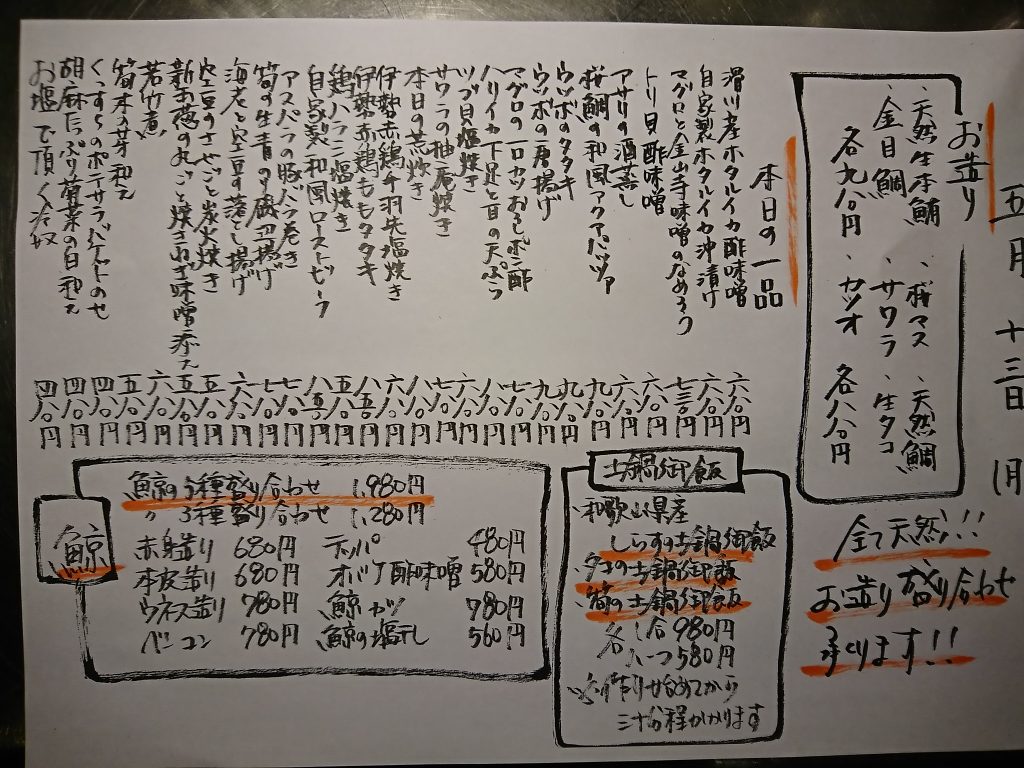 五月十三日 (月)
お造り
、天然生本鮪 、桜マス 、天然鯛
、金目鯛 、サワラ 、生タコ
各九八〇円 、カツオ 各八八〇円
全て天然!!
お造り盛り合わせ
承ります!!
本日の一品
滑川産ホタルイカ酢味噌 六八〇円
自家製ホタルイカ沖漬け 六八〇円
マグロと金山寺味噌のなめろう 七三〇円
トリ貝酢味噌 六八〇円
アサリの酒蒸し 六八〇円
桜鯛の和風アクアパッツァ 九八〇円
ウツボのタタキ 九八〇円
ウツボの唐揚げ 九八〇円
マグロの一口カツおろしポン酢 七八〇円
ハリイカ下足と豆の天ぷら 八八〇円
ツブ貝塩焼き 六八〇円
サワラの柚庵焼き 七八〇円
本日の煮炊き 八八〇円
伊勢赤鶏手羽先塩焼き 六八〇円
伊勢赤鶏ももタタキ 八五〇円
鶏ハラミ塩焼き 五八〇円
自家製和風ローストビーフ 八五〇円
アスパラの豚バラ巻き 七八〇円
筍の生青のり磯辺揚げ 七八〇円
海老と空豆の落とし揚げ 六八〇円
空豆のさやごと炭火焼き 五八〇円
新玉葱の丸ごと焼き 味噌添え 五五〇円
若竹煮 六八〇円
筍木の芽和え 五八〇円
ポテサラバゲットのせ 四八〇円
胡麻たっぷり菊菜の白和え 四八〇円
お塩で頂く冷奴 四八〇円
土鍋御飯
、和歌山県産
しらすの土鍋御飯
、タコの土鍋御飯
、筍の土鍋御飯
各 一合980円
八つ580円
※作り始めてから
三十分程かかります
鯨
鯨の5種盛り合わせ 1,980円
〃 3種盛り合わせ 1,280円
赤身造り 680円 テッパ 480円
本皮造り 680円 オバケ酢味噌 580円
ウネス造り 780円 鯨カツ 780円
ベーコン 780円 鯨の塩干し 560円